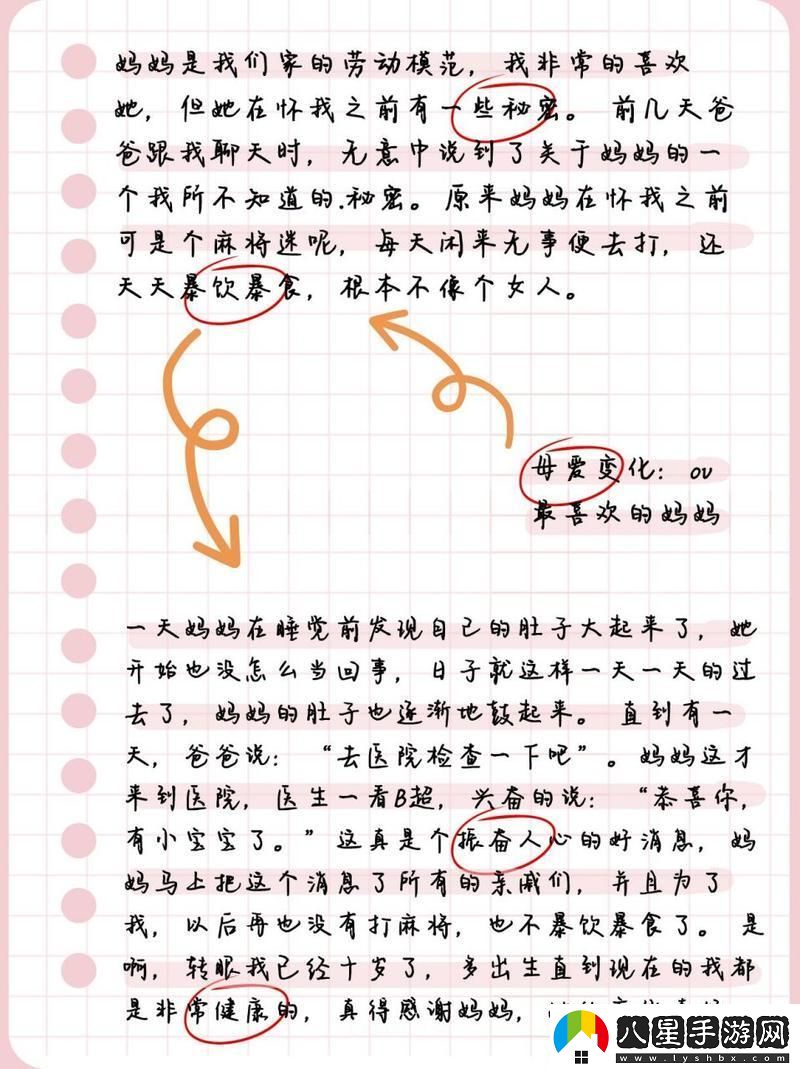 妈妈是我们家的劳动模范，我非常的喜欢
她，但她在怀我之前有一些秘密。 前几天爸
爸跟我聊天时，无意中说到了关于妈妈的一
个我所不知道的.秘密。原来妈妈在怀我之前
可是个麻将迷呢，每天闲来无事便去打，还
天天暴饮暴食，根本不像个女人。
母爱变化：ov
最喜欢的妈妈
一天妈妈在睡觉前发现自己的肚子大起来了，她
开始也没怎么当回事，日子就这样一天一天的过
去了，妈妈的肚子也逐渐地鼓起来。 直到有一
天，爸爸说：“去医院检查一下吧”。妈妈这才
来到医院，医生一看B超，兴奋的说：“恭喜你，
有小宝宝了。”这真是个振奋人心的好消息，妈
妈马上把这个消息了所有的亲戚们，并且为了
我，以后再也没有打麻将，也不暴饮暴食了。 是
啊，转眼我已经十岁了，多出生直到现在的我都
是非常健康的，真得感谢妈妈，
八星手游网
www.lyshbx.com